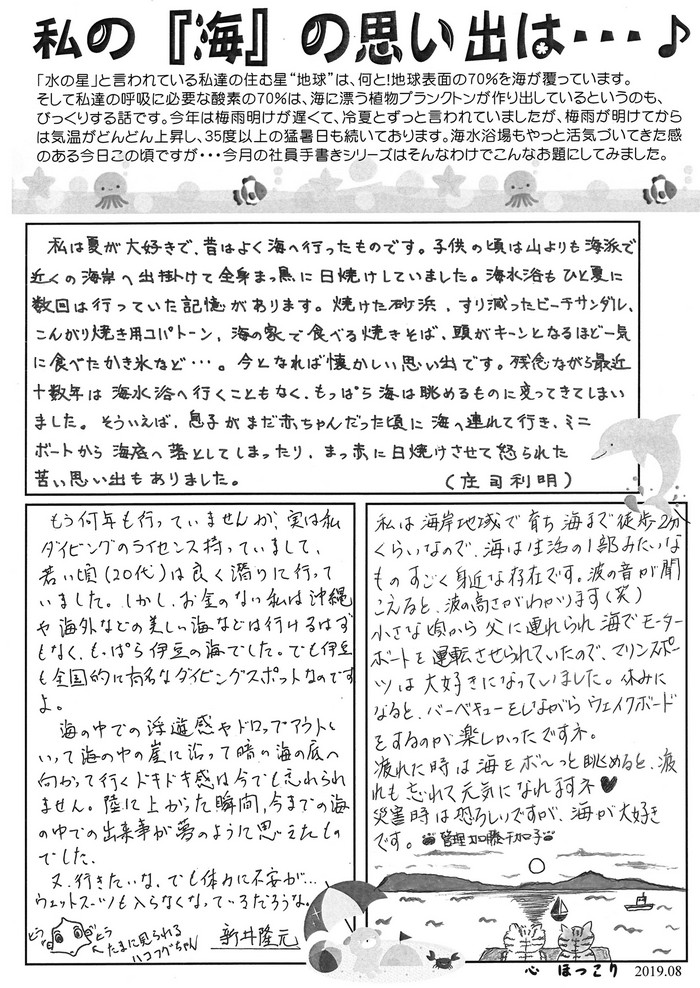 私の『海』の思い出は・・・♪
「水の星」と言われている私達の住む星“地球”は、何と!地球表面の70%を海が覆っています。
そして私達の呼吸に必要な酸素の70%は、海に漂う植物プランクトンが作り出しているというのも、
びっくりする話です。今年は梅雨明けが遅くて、冷夏とずっと言われていましたが、梅雨が明けてから
は気温がどんどん上昇し、35度以上の猛暑日も続いております。海水浴場もやっと活気づいてきた感
のある今日この頃ですが・・・今月の社員手書きシリーズはそんなわけでこんなお題にしてみました。
私は夏が大好きで、昔はよく海へ行ったものです。子供の頃は山よりも海派で
近くの海岸へ出掛けて全身まっ黒に日焼けしていました。海水浴もひと夏に
数回は行っていた記憶があります。焼けた砂浜、すり減ったビーチサンダル、
こんがり焼き用コパトーン、海の家で食べる焼きそば、頭がキーンとなるほど一気
に食べたかき氷など・・・。今となれば懐かしい思い出です。残念ながら最近
十数年は海水浴へ行くこともなく、もっぱら海は眺めるものに変ってきてしまい
ました。そういえば、息子がまだ赤ちゃんだった頃に海へ連れて行き、ミニ
ボートから海底へ落としてしまったり、まっ赤に日焼けさせて怒られた
苦い思い出もありました。(庄司利明)
もう何年も行っていませんが、実は私
ダイビングのライセンス持っていまして、
若い頃(20代)は良く潜りに行って
いました。しかし、お金のない私は沖縄
や海外などの美しい海などは行けるはず
もなく、もっぱら伊豆の海でした。でも伊豆
も全国的に有名なダイビングスポットなのです
よ。
海の中での浮遊感やドロップアウトと
いって海の中の崖に沿って暗い海の底へ
向かって行くドキドキ感は今でも忘れられ
ません。陸に上がった瞬間、今までの海
の中での出来事が夢のように思えたもの
でした。
又、行きたいな、でも体力に不安が…
ウェットスーツも入らなくなっているだろうな。
たまに見られる
ハコフグちゃん
新井隆元
私は海岸地域で育ち海まで徒歩2分
くらいなので、海は生活の1部みたいな
ものすごく身近な存在です。波の音が聞
こえると、波の高さがわかります(笑)
小さな頃から父に連れられ海でモーター
ボートを運転させられていたので、マリンスポー
ツは大好きになっていました。休みに
なると、バーベキューをしながらウェイクボード
をするのが楽しかったですネ。
疲れた時は海をボ〜っと眺めると、疲
れも忘れて元気になれますネ♥
災害時は恐ろしいですが、海が大好き
です。管理 加藤千加子
心 ほっこり
2019.08